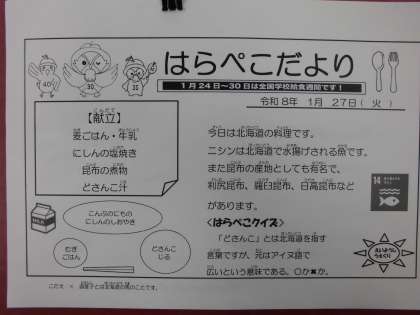 はらぺこだより
1月24日～30日は全国学校給食週間です！
令和8年 1月 27日(火)
【献立】
麦ごはん・牛乳
にしんの塩焼き
昆布の煮物
どさんこ汁
今日は北海道の料理です。
ニシンは北海道で水揚げされる魚です。
また昆布の産地としても有名で、
利尻昆布、羅臼昆布、日高昆布など
があります。
14
こんぶのにもの
にしんのしおやき
むぎ
ごはん
どさんこ
じる
<はらぺこクイズ>
「どさんこ」とは北海道を指す
言葉ですが、元はアイヌ語で
広いという意味である。〇か✖か。